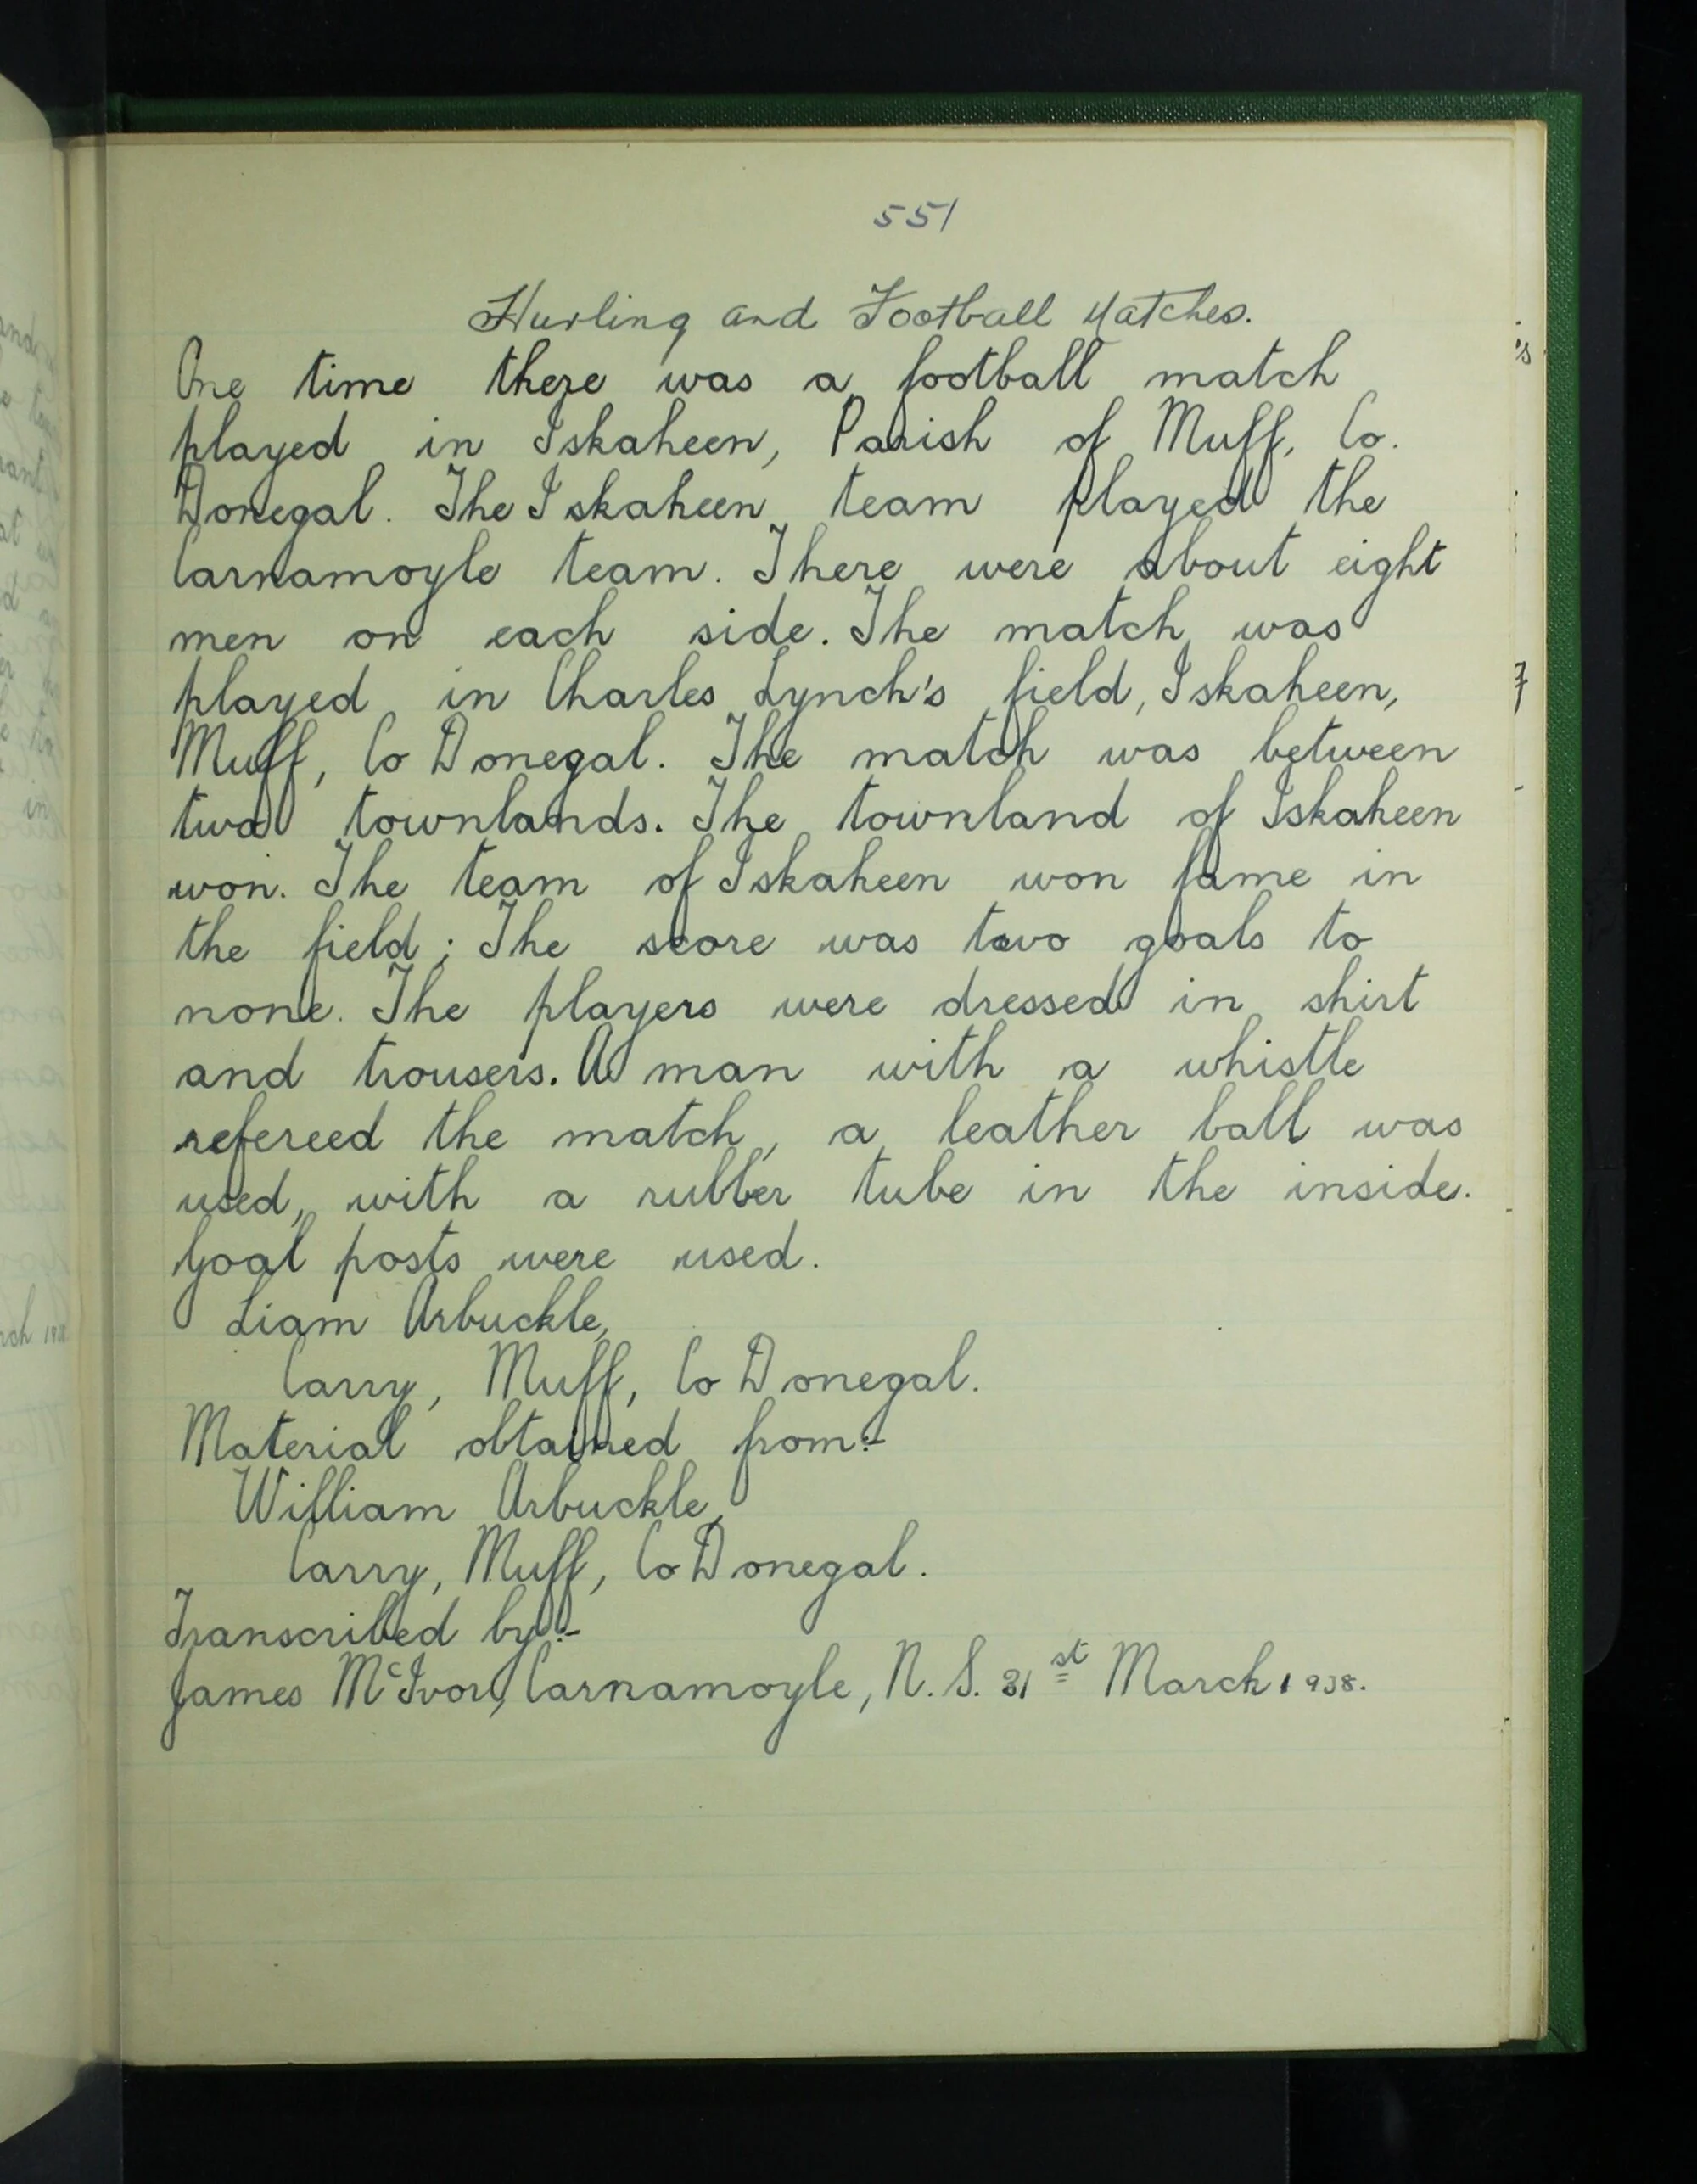 551
Hurling and Football Matches.
One time there was a football match
played in Iskaheen, Parish of Muff, Co.
Donegal. The Iskaheen team played the
Carnamoyle team. There were about eight
men on each side. The match was
played in Charles Lynch's field, Iskaheen,
Muff, Co Donegal. The match was between
two townlands. The townland of Iskaheen
won. The team of Iskaheen won fame in
the field; The score was two goals to
none. The players were dressed in shirt
and trousers. A man with a whistle
refereed the match, a leather ball was
used, with a rubber tube in the inside.
Goal posts were used.
Liam Arbuckle,
Carry, Muff, Co Donegal.
Material obtained from:-
William Arbuckle,
Carry, Muff, Co Donegal.
Transcribed by:-
James McIvor, Carnamoyle, N.S. 31st March 1938.